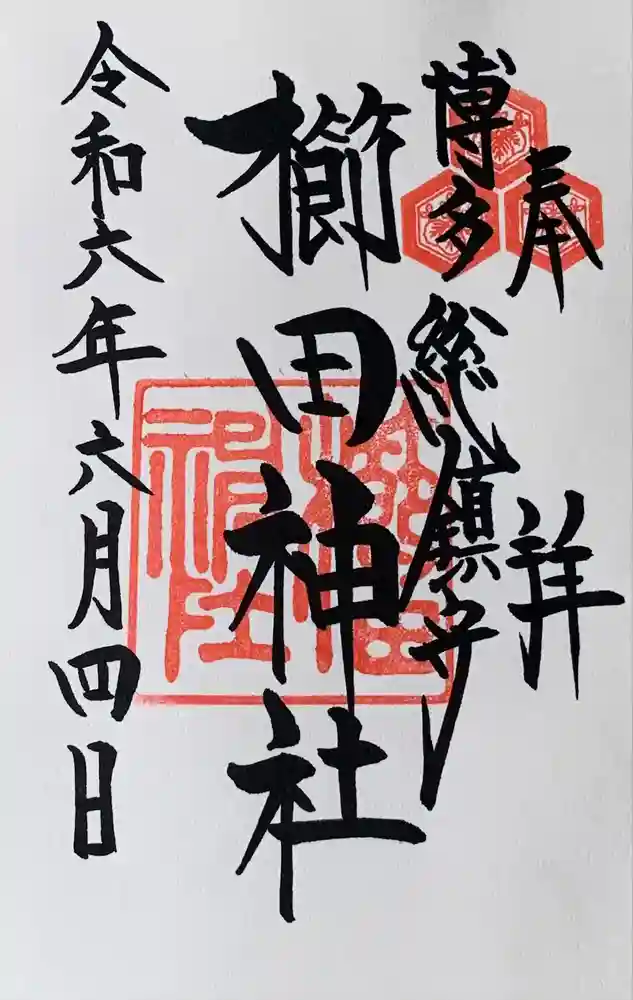 奉拝
博多総鎮守
櫛田神社
令和六年六月四日
櫛田
神社